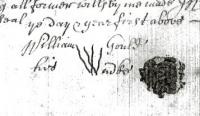 g all former wills by me made In
seal ye day & year first above
William Gould
his W Marke